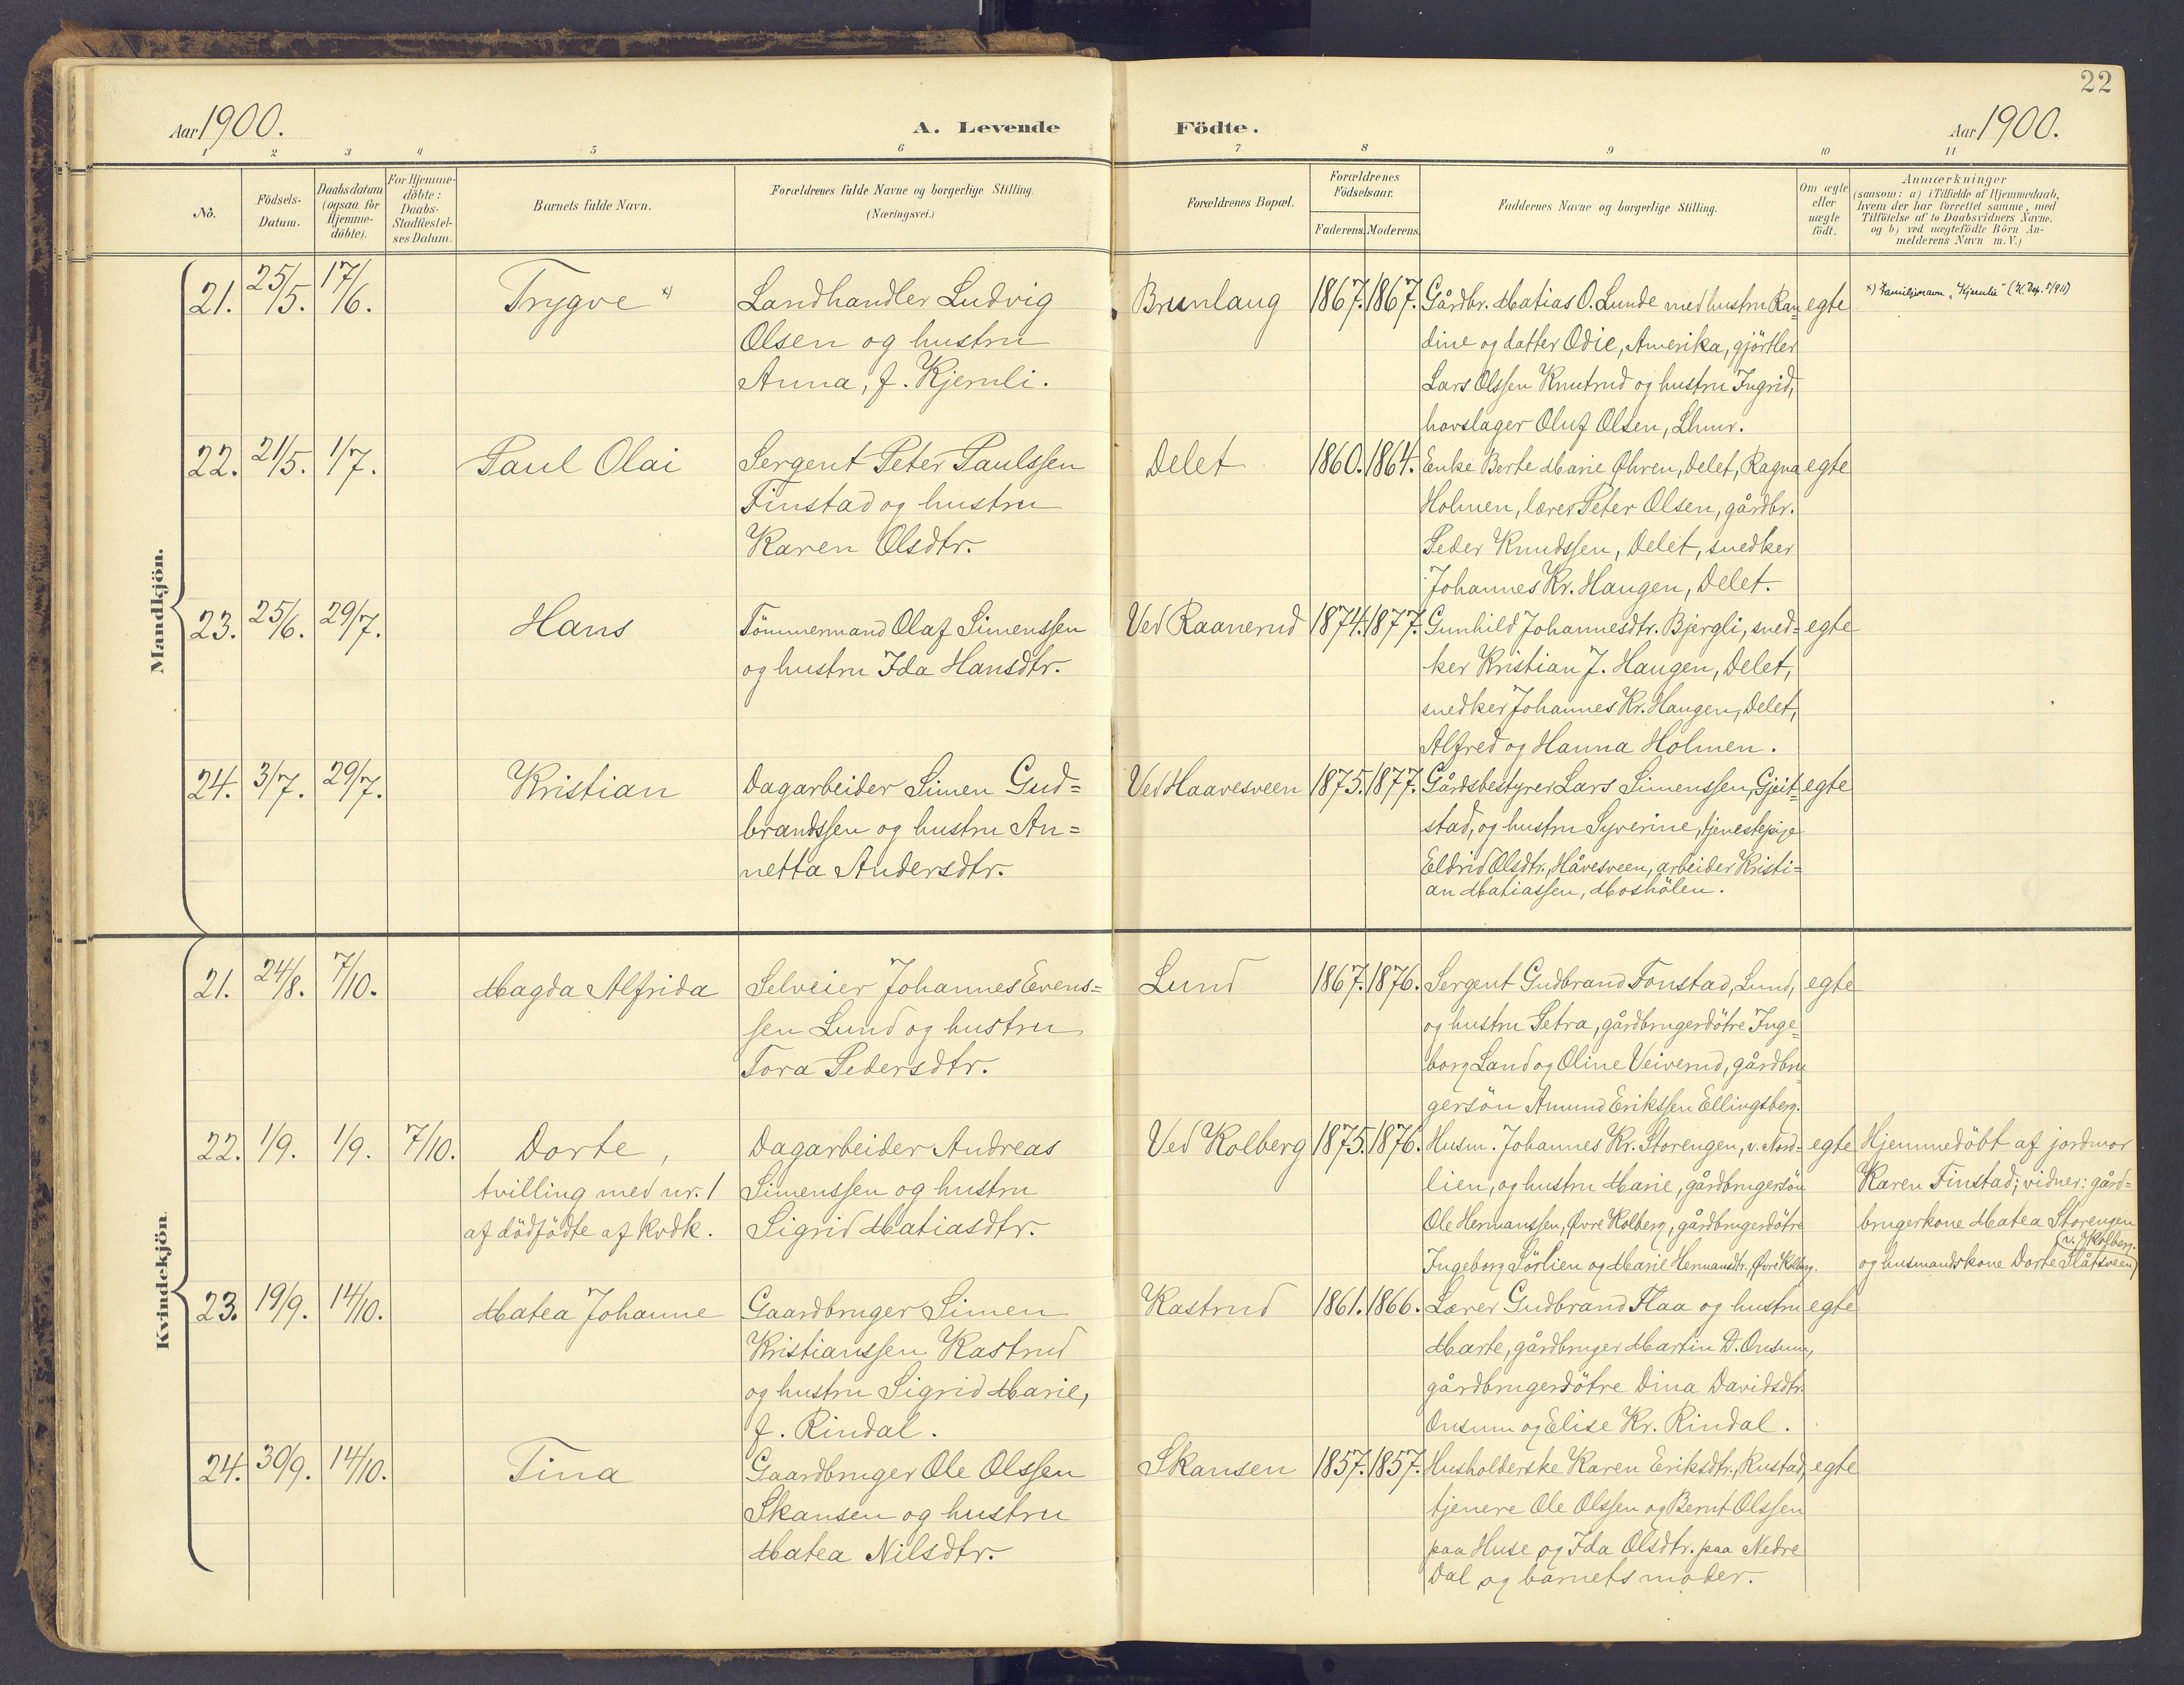 22
Aar 1900.
A. Levende Födte.
Aar 1900.
1 2 3 4 5 6 7 8 9 10 11
No.
Födsels-
Datum.
Daabsdatum
(ogsaa for
Hjemme-
döbte).
For Hjemme-
döbte:
Daabs-
Stadfæstel-
ses Datum.
Barnets fulde Navn.
Forældrenes fulde Navne og borgerlige Stilling.
(Næringsvei.)
Forældrenes Bopæl.
Forældrenes
Födselsaar.
Faderens. Moderens.
Faddernes Navne og borgerlige Stilling.
Om ægte
eller
uægte
födt.
Anmærkninger
(saasom: a) i Tilfælde af Hjemmedaab,
hvem der har forrettet samme, med
Tilföielse af to Daabsvidners Navne,
og b) ved uægtefödte Börn An-
melderens Navn m. V.)
Mandkjön.
21. 25/5. 17/6. Trygve x)
Landhandler Ludvig
Olsen og hustru
Anna, f. Kjernli.
Brunlaug 1867. 1867.
Gårdbr. Matias O. Lunde med hustru Ran-
dine og datter Odie, Amerika, gjörtler
Lars Olssen Knutrud og hustru Ingrid,
hovslager Oluf Olsen, Lhmr.
egte
x) Familjenavn "Kjernlie" (K. Dep. 5/9 11)
22. 21/5. 1/7. Paul Olai
Sergent Peter Paulssen
Finstad og hustru
Karen Olsdtr.
Delet 1860. 1864.
Enke Berte Marie Øhren, Delet, Ragna
Holmen, lærer Peter Olsen, gårdbr.
Peder Knudssen, Delet, snedker
Johannes Kr. Haugen, Delet.
egte
23. 25/6. 29/7. Hans
Tömmermand Olaf Simenssen
og hustru Ida Hansdtr.
Ved Raanerud 1874. 1877.
Gunhild Johannesdtr. Bjergli, sned=
ker Kristian J. Haugen, Delet,
snedker Johannes Kr. Haugen, Delet,
Alfred og Hanna Holmen.
egte
24. 3/7. 29/7. Kristian
Dagarbeider Simen Gud=
brandssen og hustru An=
netta Andersdtr.
Ved Haavesveen 1875. 1877.
Gårdsbestyrer Lars Simenssen, Gjeit-
stad, og hustru Syverine, tjenestepige
Eldrid Olsdtr., Håvesveen, arbeider Kristi=
an Matiassen, Moshölen.
egte
Kvindekjön.
21. 24/8. 7/10. Magda Alfrida
Selveier Johannes Evens=
sen Lund og hustru
Tora Pedersdtr.
Lund 1867. 1876.
Sergent Gudbrand Fonstad, Lund,
og hustru Petra, gårdbrugerdötre Inge=
borg Land og Oline Veiverud, gårdbru
gersön Amund Erikssen Ellingsberg.
egte
22. 1/9. 1/9. 7/10. Dorte,
tvilling med nr. 1
af dödfödte af kvdk.
Dagarbeider Andreas
Simenssen og hustru
Sigrid Matiasdtr.
Ved Kolberg 1875. 1876.
Husm. Johannes Kr. Storengen, v. Nord-
lien, og hustru Marie, gårdbrugersön
Ole Hermanssen, Øvre Kolberg, gårdbrugerdötre
Ingeborg Sörlien og Marie Hermansdtr. Øvre Kolberg.
egte
Hjemmedöbt af jordmor
Karen Finstad; vidner: gård=
brugerkone Matea Storengen
og husmandskone Dorte Slåtsveen
23. 19/9. 14/10. Matea Johanne
Gaardbruger Simen
Kristianssen Kastrud
og hustru Sigrid Marie,
f. Rindal.
Kastrud 1861. 1866.
Lærer Gudbrand Flaa og hustru
Marte, gårdbruger Martin D. Onsum,
gårdbrugerdötre Dina Davidsdtr.
Onsum og Elise Kr. Rindal.
egte
24. 30/9. 14/10. Tina
Gaardbruger Ole Olssen
Skansen og hustru
Matea Nilsdtr.
Skansen 1857. 1857.
Husholderske Karen Eriksdtr., Rustad,
tjenere Ole Olssen og Bernt Olssen
paa Huse og Ida Olsdtr. paa Nedre
Dal og barnets moder.
egte